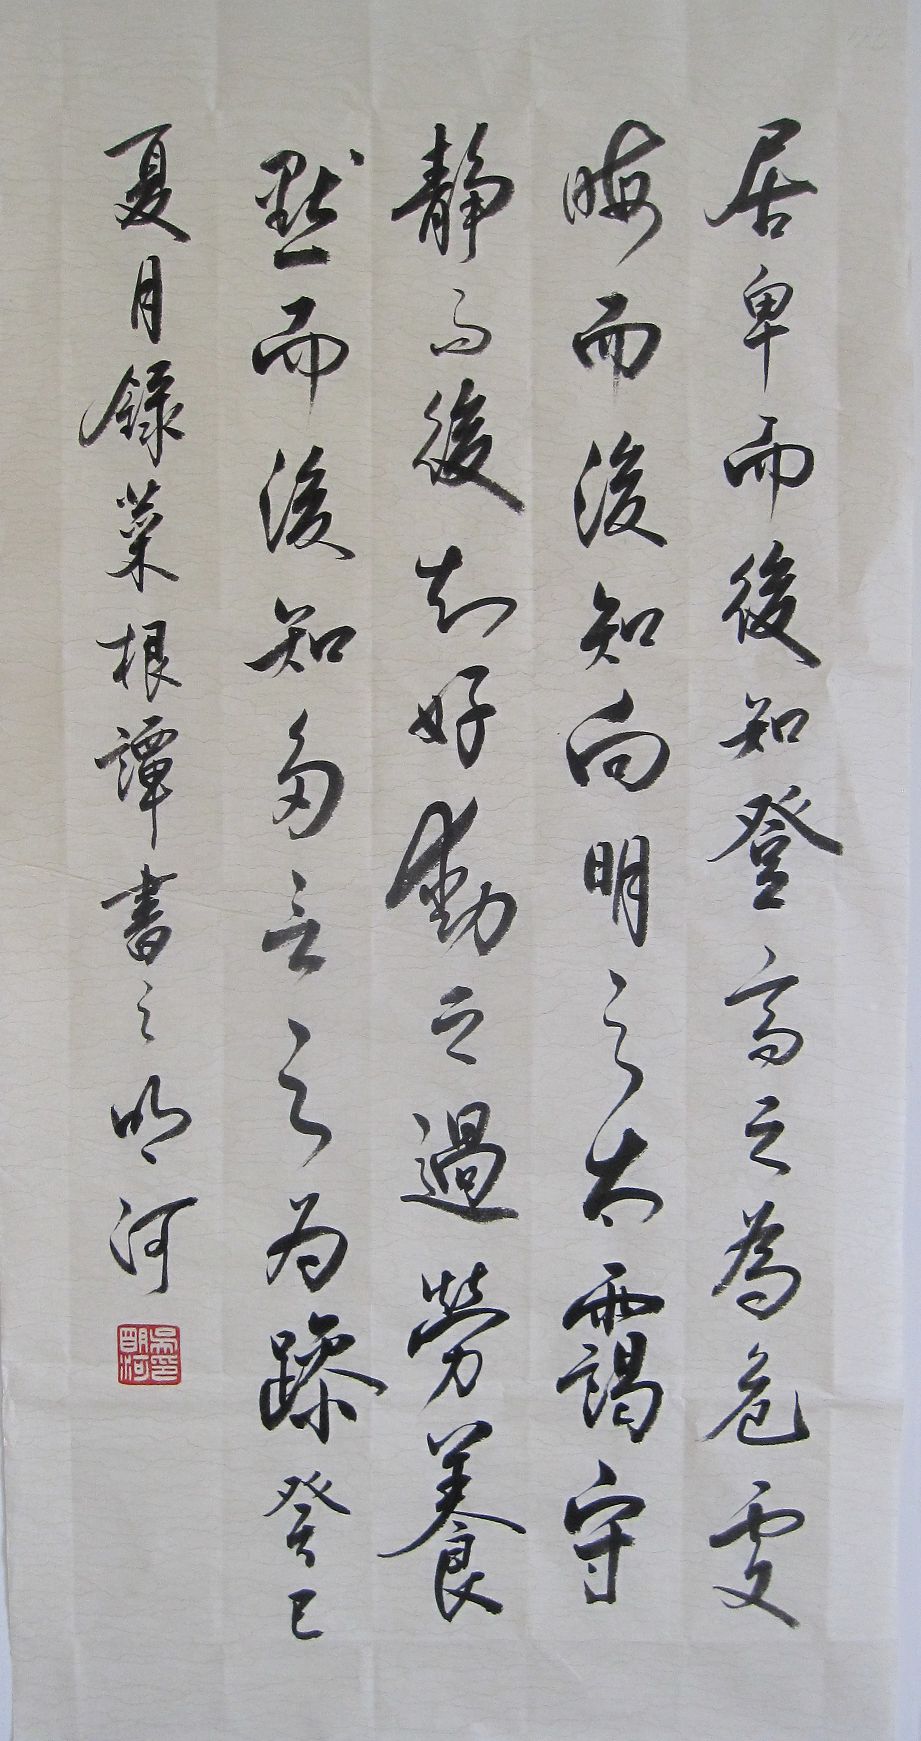 居卑而後知登高之為危處
晦而後知向明之太露守
靜而後知好動之過勞養
默而後知多言之為躁癸巳
夏月錄菜根譚書之明河
吳明河印